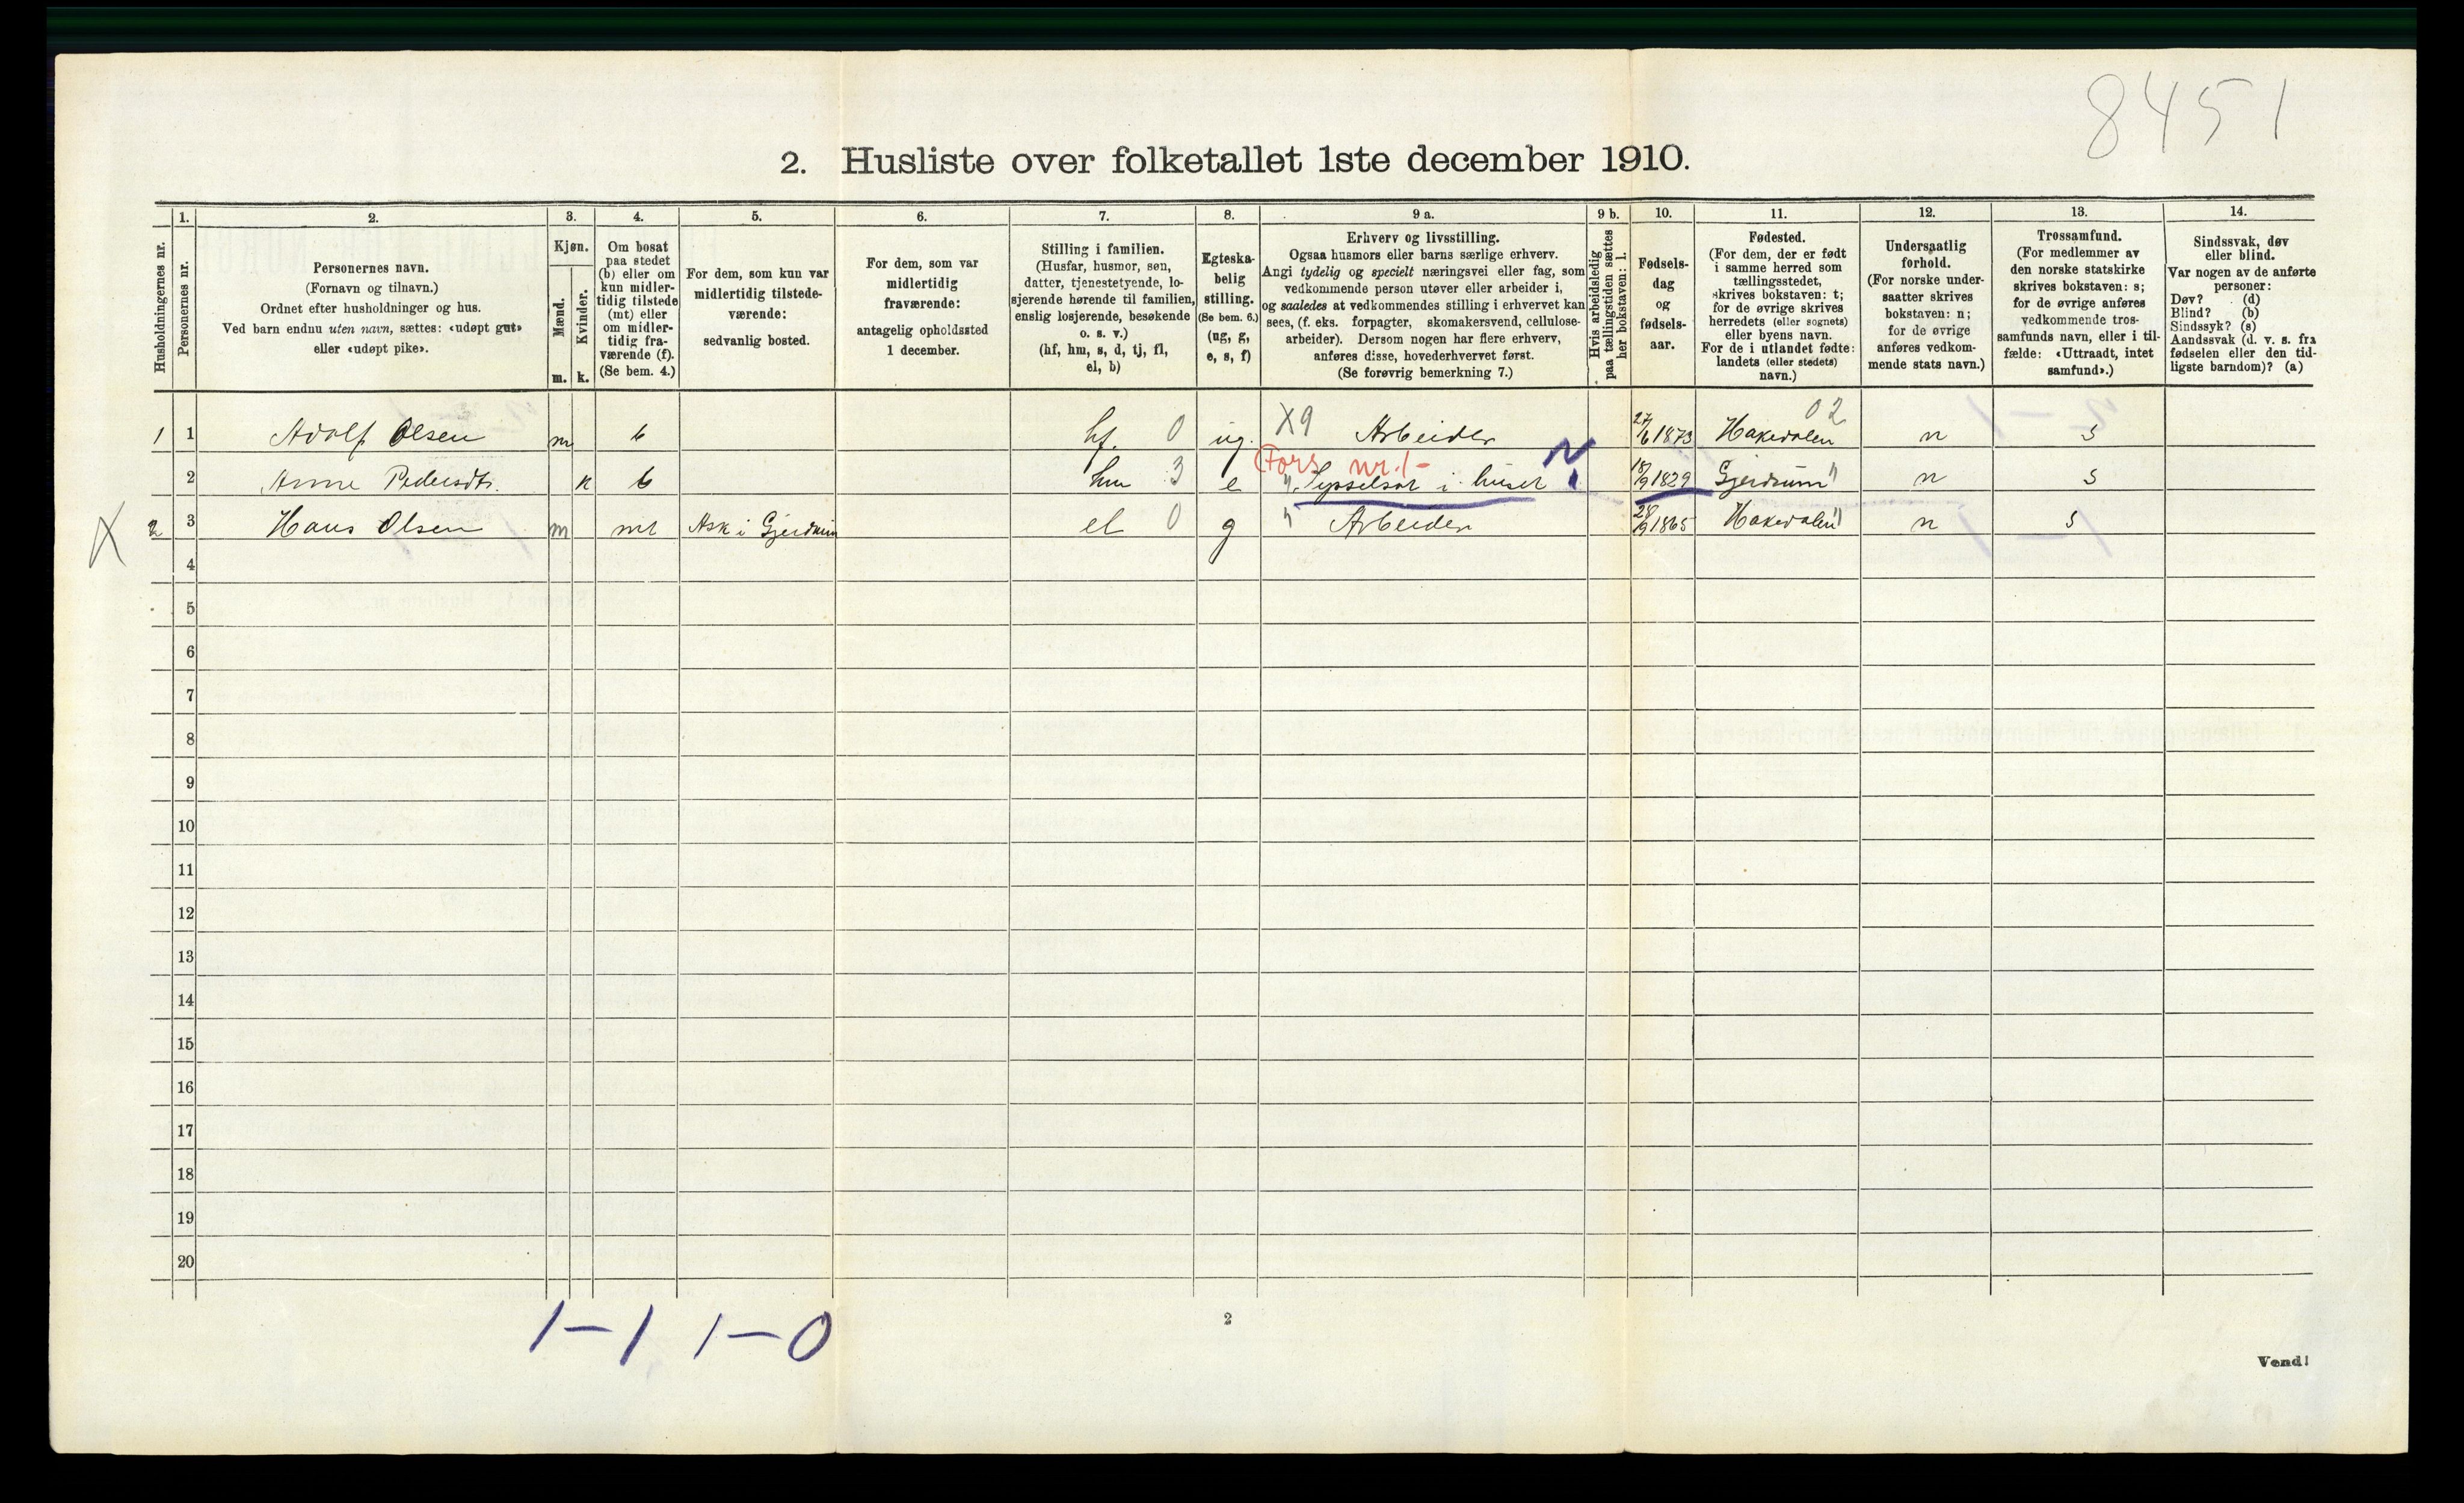 8451
2. Husliste over folketallet 1ste december 1910.
Husholdningernes nr.
1.
Personernes nr.
2.
Personernes navn.
(Fornavn og tilnavn.)
Ordnet efter husholdninger og hus.
Ved barn endnu uten navn, sættes: «udøpt gut»
eller «udøpt pike».
3.
Kjøn.
Mænd.
Kvinder.
m.
k.
4.
Om bosat
paa stedet
(b) eller om
kun midler-
tidig tilstede
(mt) eller
om midler-
tidig fra-
værende (f).
(Se bem. 4.)
5.
For dem, som kun var
midlertidig tilstede-
værende:
sedvanlig bosted.
6.
For dem, som var
midlertidig
fraværende:
antagelig opholdssted
1 december.
7.
Stilling i familien.
(Husfar, husmor, søn,
datter, tjenestetyende, lo-
sjerende hørende til familien,
enslig losjerende, besøkende
o. s. v.)
(hf, hm, s, d, tj, fl,
el, b)
8.
Egteska-
belig
stilling.
(Se bem. 6.)
(ug, g,
e, s, f)
9 a.
Erhverv og livsstilling.
Ogsaa husmors eller barns særlige erhverv.
Angi tydelig og specielt næringsvei eller fag, som
vedkommende person utøver eller arbeider i,
og saaledes at vedkommendes stilling i erhvervet kan
sees, (f. eks. forpagter, skomakersvend, cellulose-
arbeider). Dersom nogen har flere erhverv,
anføres disse, hovederhvervet først.
(Se forøvrig bemerkning 7.)
9 b.
Hvis arbeidsledig
paa tællingstiden sættes
her bokstaven: l.
10.
Fødsels-
dag
og
fødsels-
aar.
11.
Fødested.
(For dem, der er født
i samme herred som
tællingsstedet,
skrives bokstaven: t;
for de øvrige skrives
herredets (eller sognets)
eller byens navn.
For de i utlandet fødte:
landets (eller stedets)
navn.)
12.
Undersaatlig
forhold.
(For norske under-
saatter skrives
bokstaven: n;
for de øvrige
anføres vedkom-
mende stats navn.)
13.
Trossamfund.
(For medlemmer av
den norske statskirke
skrives bokstaven: s;
for de øvrige anføres
vedkommende tros-
samfunds navn, eller i til-
fælde: «Uttraadt, intet
samfund».)
14.
Sindssvak, døv
eller blind.
Var nogen av de anførte
personer:
Døv? (d)
Blind? (b)
Sindssyk? (s)
Aandssvak (d. v. s. fra
fødselen eller den tid-
ligste barndom)? (a)
1 1 Adolf Olsen m b hf. 0 ug. X9 Arbeider 27/6 1873 Hakedalen 02 n s
Fors. nr. 1 -
2 Anne Pedersdtr. k b hm 3 e " Sysselsat i huset 18/9 1829 Gjerdrum " n s
X 2 3 Hans Olsen m mt Ask i Gjerdrum el 0 g " Arbeider 28/9 1865 Hakedalen " n s
4
5
6
7
8
9
10
11
12
13
14
15
16
17
18
19
20
1-1 1-0
2
Vend!